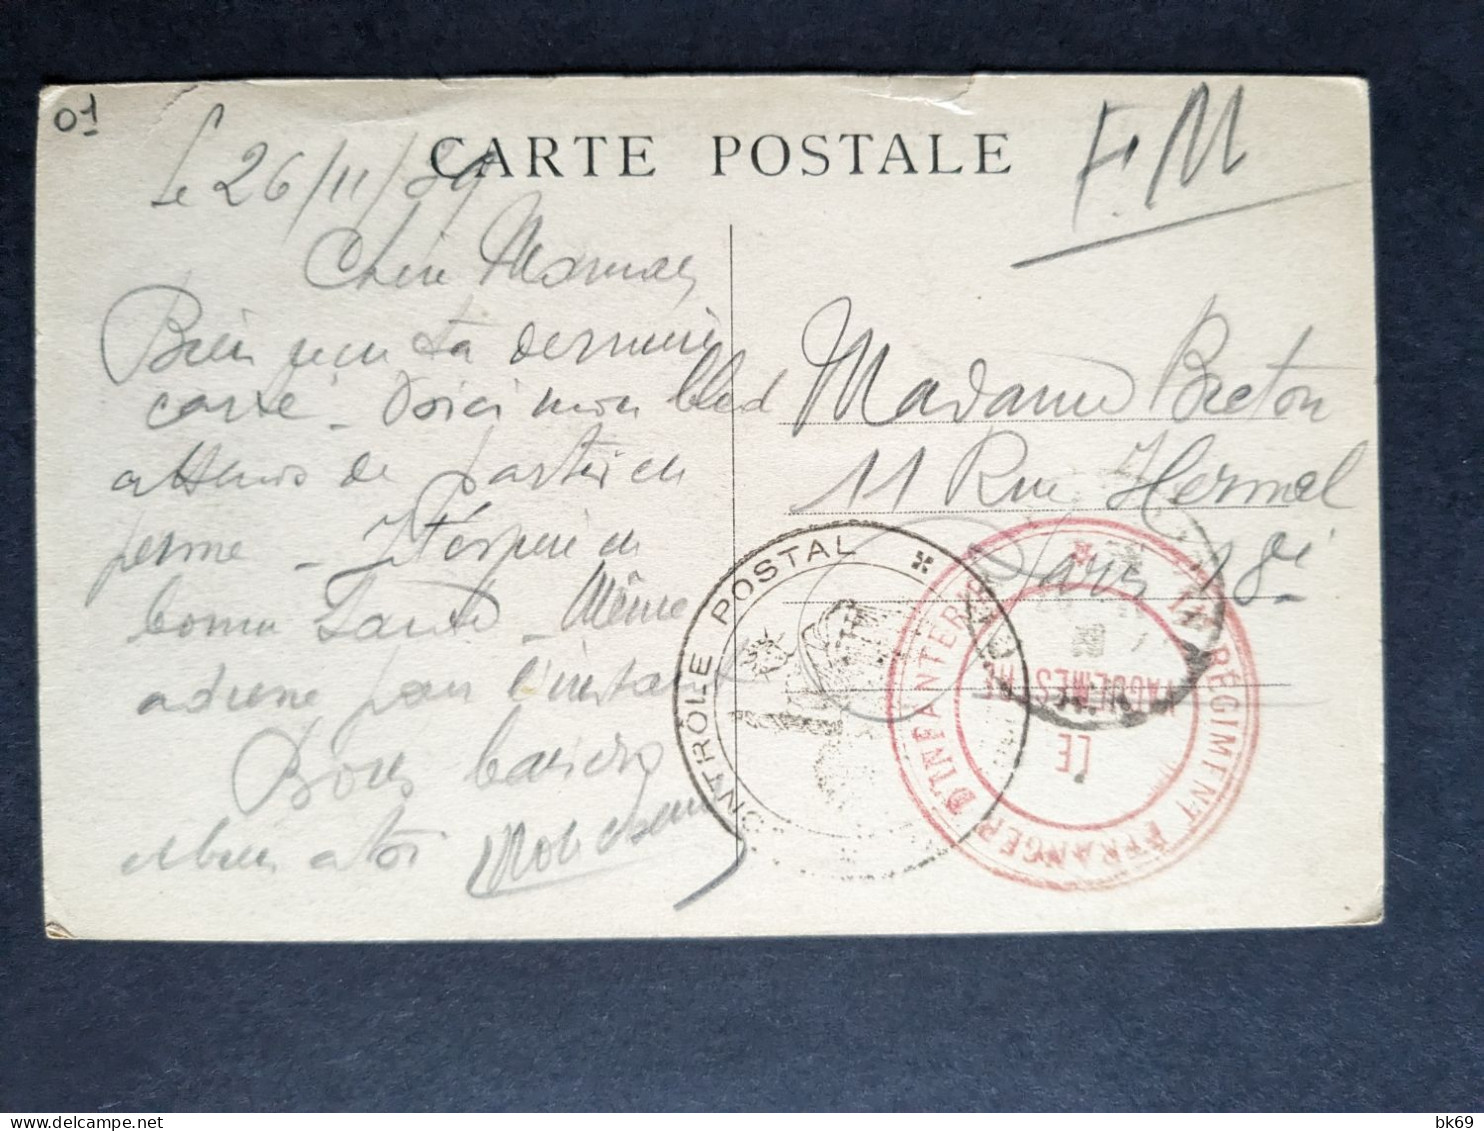 01
CARTE POSTALE
F.M
Le 26/11/39
Chère Maman
Bien reçu ta dernière
carte - Voici mon bled
attends de partir en
perme - J'espère en
bonne santé - Même
adresse pour l'instant
Bons baisers
et bien à toi
Madame Breton
11 Rue Hermel
Paris 18e
CONTROLE POSTAL
RÉGIMENT ÉTRANGER D'INFANTERIE
LE
VAGUEMESTRE
bk69